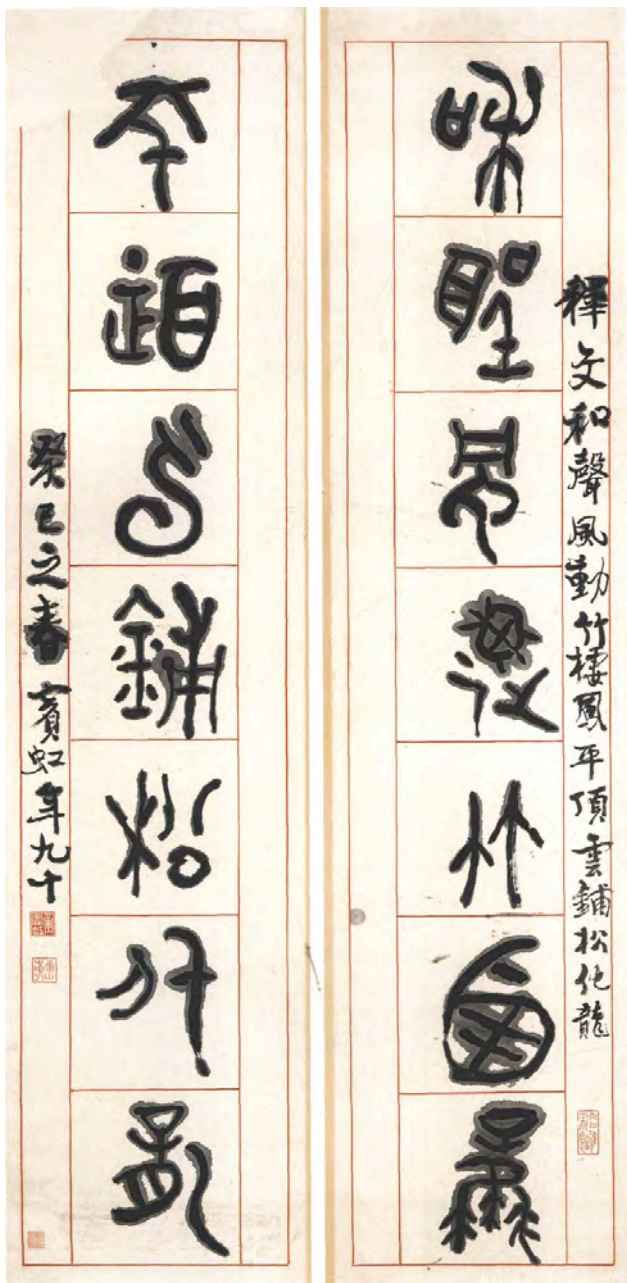 和聲風動竹棲鳳
釋文和聲風動竹棲鳳平頂雲鋪松化龍
平頂雲鋪松化龍
癸巳之春賓虹年九十